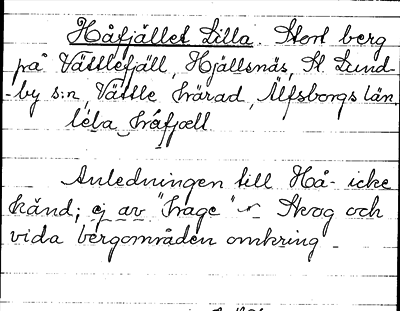 Håfjället Lilla. Stort berg
på Vättlefjäll, Hjällsnäs, St. Lund-
-by s:n, Vättle härad, Älfsborgs län.
lela håfjæll.
Anledningen till Hå- icke
känd; ej av "hage". Skog och
vida bergområden omkring